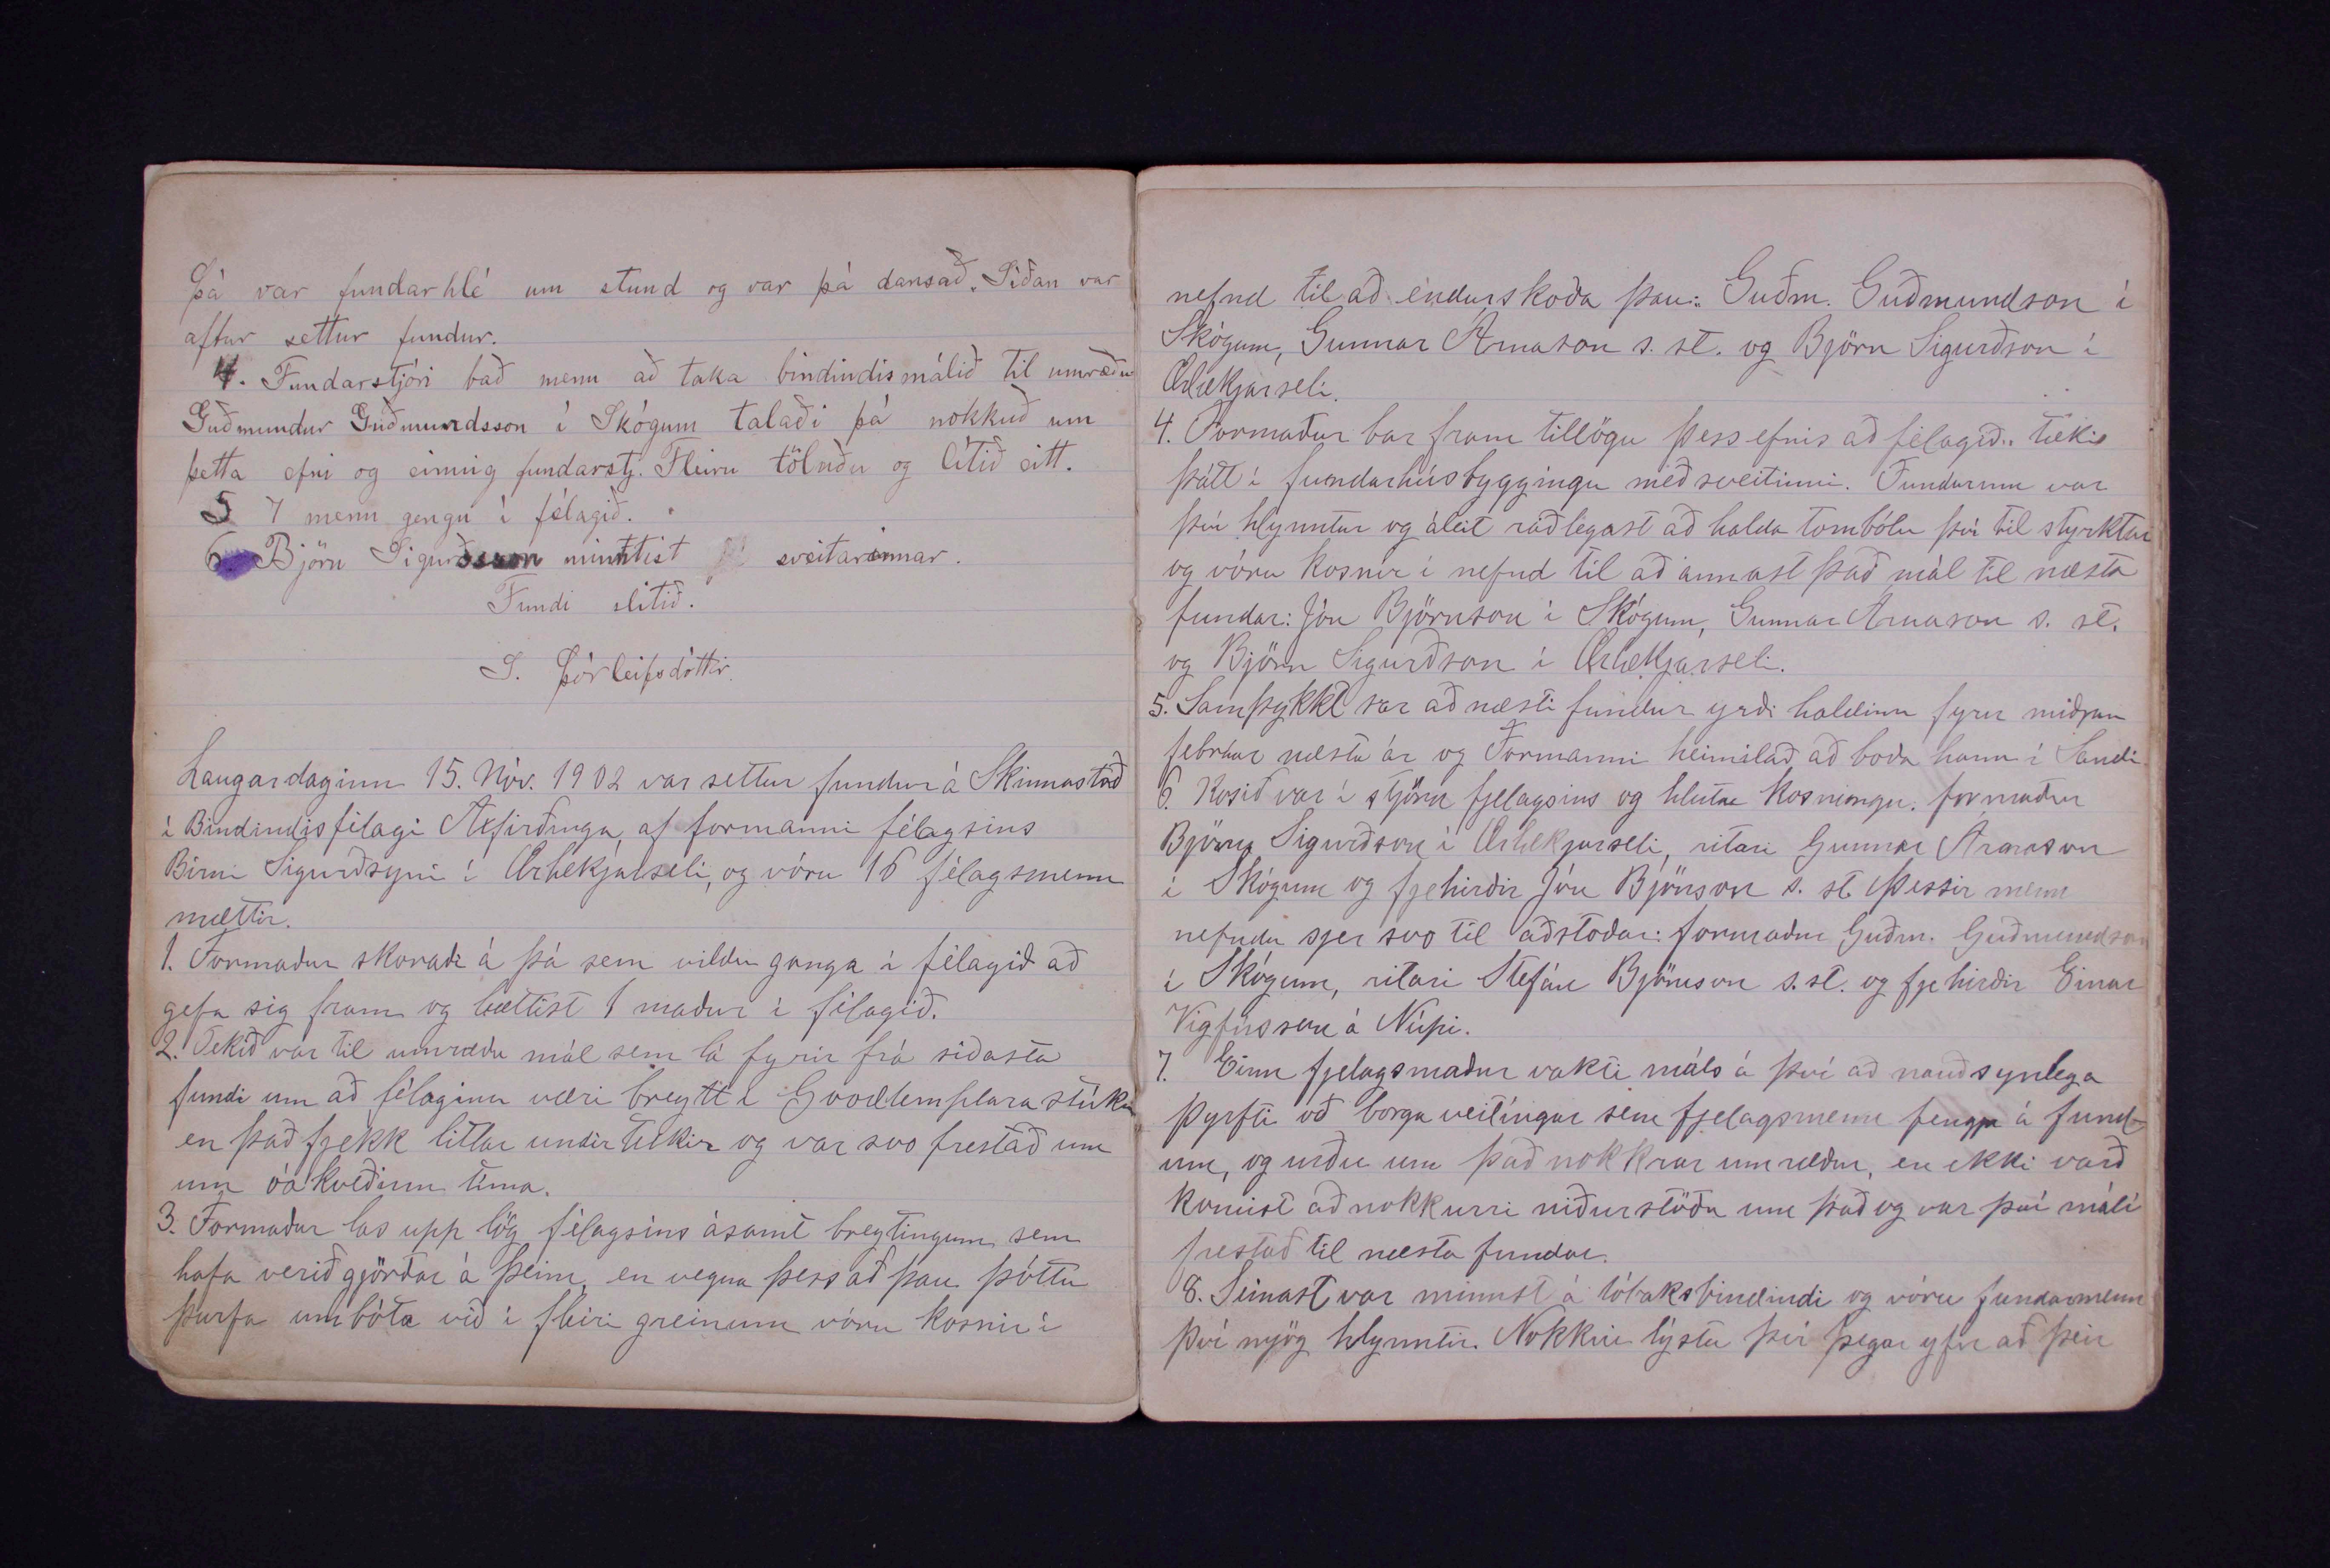 Þá var fundarhlé um stund og var þá dansað. Síðan var
aftur settur fundur.
4. Fundarstjóri bað menn að taka bindindismálið til umræðu
Guðmundur Guðmundsson í Skógum talaði þá nokkuð um
þetta efni og einnig fundarstj. Fleiru töluðu og lítið eitt.
5 7 menn gengu í félagið.
6 Björn Sigurðsson minntist sveitarinnar.
Fundi slitið.
S. Þórleifsdóttir.
Laugardaginn 15. Nóv. 1902 var settur fundur á Skinnastað
í Bindindisfélagi Axfirðinga, af formanni félagsins
Birni Sigurðsyni í Ærlækjarseli, og vóru 16 félagsmenn
mættir.
1. Formaður skoraði á þá sem vildu ganga í félagið að
gefa sig fram og bættist 1 maður í félagið.
2. Tekið var til umræðu mál sem lá fyrir frá síðasta
fundi um að félaginu væri breytt í Goodtemplara stúku
en það fjekk litlar undirtektir og var svo frestað um
um óákveðinn tíma.
3. Formaður las upp lög félagsins ásamt breytingum sem
hafa verið gjörðar á þeim, en vegna þess að þau þóttu
þurfa umbóta við í fleiri greinum vóru kosnir í
nefnd til að endurskoða þau: Guðm. Guðmundson í
Skógum, Gunnar Árnason s. st. og Björn Sigurðson í
Ærlækjarseli.
4. Formaður bar fram tillögu þess efnis að félagið tæki
þátt í fundarhúsbyggingu með sveitinni. Fundurinn var
því hlynntur og áleit ráðlegast að halda tombólu því til styrktar
og vóru kosnir í nefnd til að annast það mál til næsta
fundar: Jón Björnson í Skógum, Gunnar Árnason s. st.
og Björn Sigurðson í Ærlækjarseli.
5. Samþykkt var að næsti fundur yrði haldinn fyrir miðjan
febrúar næsta ár og Formanni heimilað að boða hann í Sandi
6. Kosið var í stjórn fjelagsins og hlutu kosningu. formaður
Björn Sigurðson í Ærlækjarseli, ritari Gunnar Árnason
í Skógum og fjehirðir Jón Björnson s. st. Þessir menn
nefndu sjer svo til aðstoðar: formaður Guðm. Guðmundson
í Skógum, ritari Stefán Björnson s. st. og fjehirðir Einar
Vigfússon á Núpi.
7. Einn fjelagsmaður vakti máls á því að nauðsynlega
þyrfti að borga veitíngar sem fjelagsmenn fengju á fund-
um, og urðu um það nokkrar umræður, en ekki varð
komist að nokkurri niðurstöðu um það og var því máli
frestað til næsta fundar.
8. Seinast var minnst á tóbaksbindindi og vóru fundarmenn
því mjög hlynntir. Nokkrir lýstu því þegar yfir að þeir